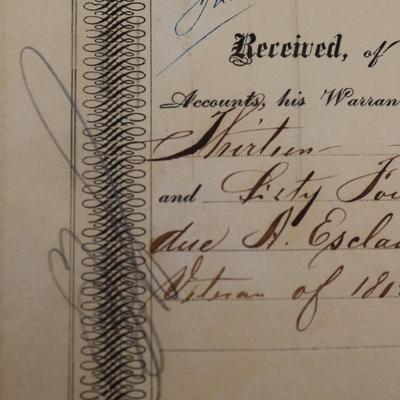 Received, of
Accounts, his Warran
Thirteen
and Sixty Fou
due A. Escla
Veteran of 181